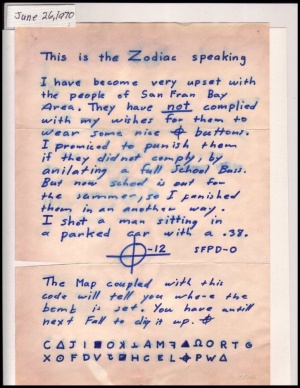 June 26, 1970
This is the Zodiac speaking
I have become very upset with
the people of San Fran Bay
Area. They have not complied
with my wishes for them to
wear some nice ⌖ buttons.
I promiced to punish them
if they did not comply, by
anilating a full School Buss.
But now school is out for
the sammer, so I punished
them in an another way.
I shot a man sitting in
a parked car with a .38.
⌖-12 SFPD-0
The Map coupled with this
code will tell you where the
bomb is set. You have antill
next Fall to dig it up. ⌖